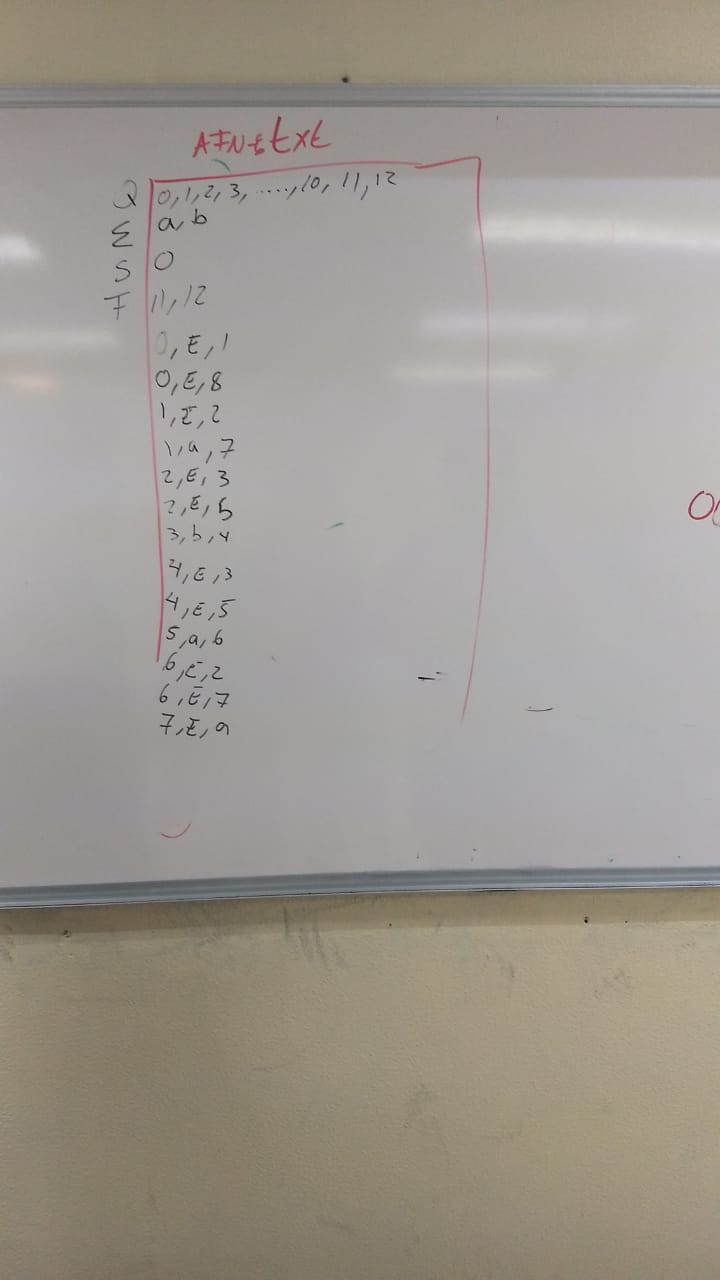 AFN-ε.txt
Q 0,1,2,3,.....,10,11,12
Σ a,b
S 0
F 11,12
0,E,1
0,E,8
1,E,2
1,a,7
2,E,3
2,E,5
3,b,4
4,E,3
4,E,5
5,a,6
6,E,2
6,E,7
7,E,9